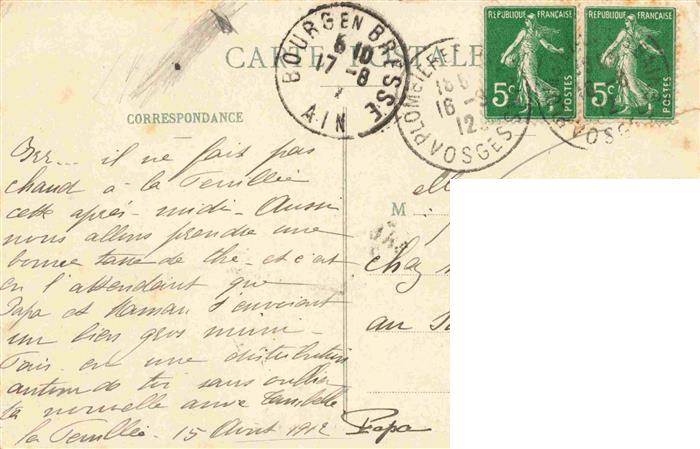 CARTE POSTALE
BOURG EN BRESSE
6 10
17 - 8
AIN
VOSGES
12
RÉPUBLIQUE FRANÇAISE
5c
POSTES
RÉPUBLIQUE FRANÇAISE
5c
POSTES
VOSGES
CORRESPONDANCE
Brr... il ne fait pas
chaud à la Feuillée
cette après-midi. Aussi
nous allons prendre une
bonne tasse de thé - et c'est
en l'attendant que
Papa et Maman t'envoient
un bien gros mimi -
Fais en une distribution
autour de toi sans oublier
ta nouvelle amie
La Feuillée. 15 Août 1912 Papa
M elle
chez
au